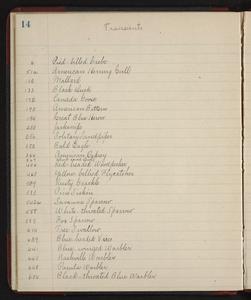 14
Transients
6 Pied-billed Grebe
51a American Herring Gull
132 Mallard
133 Black Duck
172 Canada Goose
190 American Bittern
194 Great Blue Heron
Solitary Sandpiper
352 Bald Eagle
American Osprey
Red-headed Woodpecker
Yellow-bellied Flycatcher
509 Rusty Grackle
533 Pine Siskin
542a Savanna Sparrow
558 White-throated Sparrow
585 Fox Sparrow
614 Tree Swallow
Blue-headed Vireo
641 Blue-winged Warbler
645 Nashville Warbler
648 Parula Warbler
654 Black-throated Blue Warbler